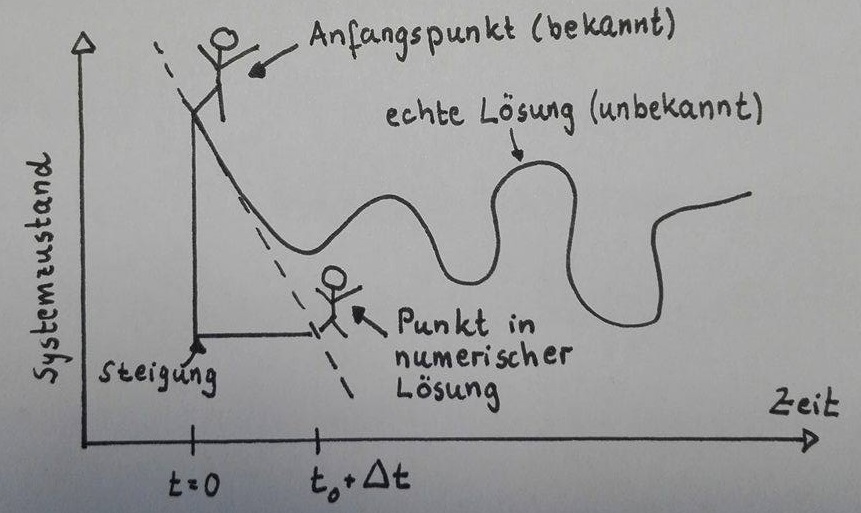 Anfangspunkt (bekannt)
echte Lösung (unbekannt)
Systemzustand
Punkt in
numerischer
Lösung
Steigung
Zeit
t=0
t₀+Δt